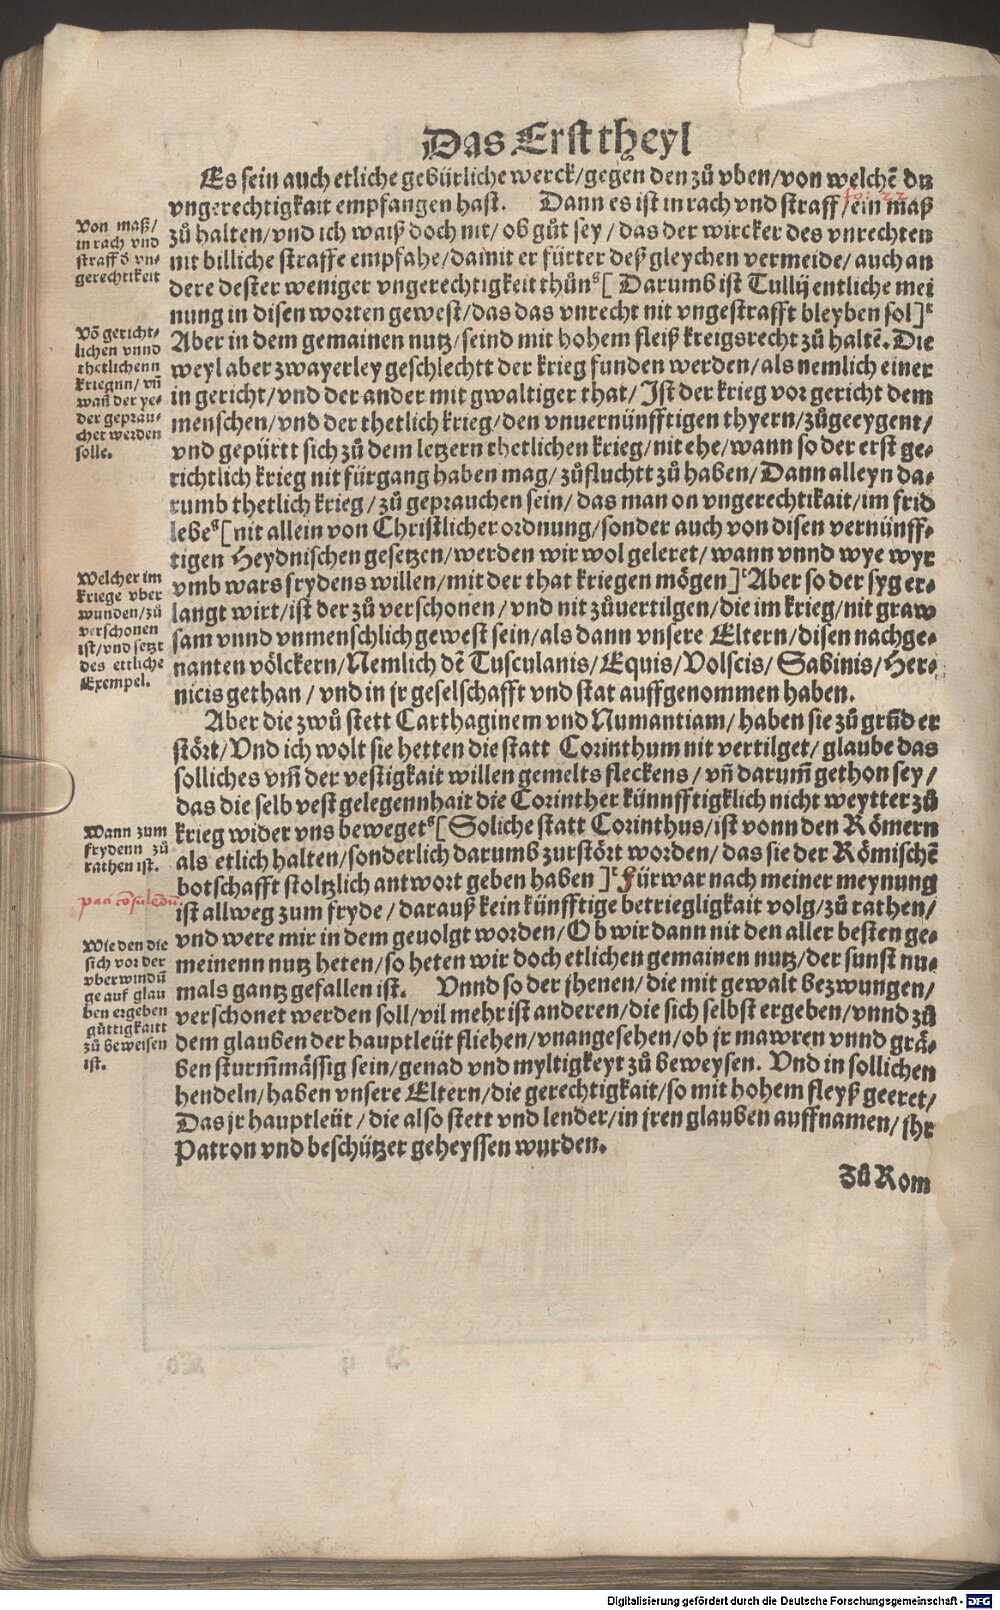 Das Erst theyl
Es sein auch etliche gebürliche werck/gegen den zů vben/von welchẽ du
vngerechtigkait empfangen hast. Dann es ist in rach vnd straff/ein maß
fo: 22
zů halten/vnd ich waiß doch nit/ ob gůt sey/das der wircker des vnrechten
nit billiche straffe empfahe/damit er fürter deß gleychen vermeide/auch an
dere dester weniger vngerechtigkeit thůn⁸[ Darumb ist Tullij entliche mei
nung in disen worten gewest/das das vnrecht nit vngestrafft bleyben sol]ᵗ
Aber in dem gemainen nutz/seind mit hohem fleiß kreigsrecht zů haltẽ. Die
weyl aber zwayerley geschlechtt der krieg funden werden/als nemlich einer
in gericht/vnd der ander mit gwaltiger that/ Ist der krieg vor gericht dem
menschen/vnd der thetlich krieg/den vnuernünfftigen thyern/zůgeeygent/
vnd gepürtt sich zů dem letzern thetlichen krieg/nit ehe/wann so der erst ge⸗
richtlich krieg nit fürgang haben mag/zůfluchtt zů haben/Dann alleyn da⸗
rumb thetlich krieg/zů geprauchen sein/das man on vngerechtikait/im frid
lebe⁸[nit allein von Christlicher ordnung/sonder auch von disen vernünff⸗
tigen Heydnischen gesetzen/werden wir wol geleret/wann vnnd wye wyr
vmb wars frydens willen/mit der that kriegen mögen]ᵗAber so der syg er⸗
langt wirt/ist der zů verschonen/vnd nit zůuertilgen/die im krieg/nit graw
sam vnnd vnmenschlich gewest sein/als dann vnsere Eltern/disen nachge⸗
nanten völckern/Nemlich dẽ Tusculanis/Equis/Volscis/Sabinis/Her⸗
nicis gethan/vnd in jr geselschafft vnd stat auffgenommen haben.
Aber die zwů stett Carthaginem vnd Numantiam/haben sie zů grũd er
stört/Vnd ich wolt sie hetten die statt Corinthum nit vertilget/glaube das
solliches vm̃ der vestigkait willen gemelts fleckens/vñ darum̃ gethon sey/
das die selb vest gelegennhait die Corinther künnfftigklich nicht weytter zů
krieg wider vns beweget⁸[Soliche statt Corinthus/ist vonn den Römern
als etlich halten/sonderlich darumb zurstört worden/das sie der Römischẽ
botschafft stoltzlich antwort geben haben]ᵗFürwar nach meiner meynung
ist allweg zum fryde/darauß kein künfftige betriegligkait volg/zů rathen/
vnd were mir in dem geuolgt worden/Ob wir dann nit den aller besten ge⸗
meinenn nutz heten/so heten wir doch etlichen gemainen nutz/der sunst nu⸗
mals gantz gefallen ist. Vnnd so der jhenen/die mit gewalt bezwungen/
verschonet werden soll/vil mehr ist anderen/die sich selbst ergeben/vnnd zů
dem glauben der hauptleüt fliehen/vnangesehen/ob jr mawren vnnd grä⸗
ben sturm̃mässig sein/genad vnd myltigkeyt zů beweysen. Vnd in sollichen
hendeln/haben vnsere Eltern/die gerechtigkait/so mit hohem fleyß geeret/
Das jr hauptleüt/die also stett vnd lender/in jren glauben auffnamen/jhr
Patron vnd beschützer geheyssen wurden.
Zů Rom
Von maß/
in rach vnd
straff d̉ vn⸗
gerechtikeit
Võ gericht⸗
lichen vnnd
thetlichenn
kriegnn/vñ
wañ der ye⸗
der geprau⸗
chet werden
solle.
Welcher im
kriege vber
wunden/zů
verschonen
ist/vnd setzt
des ettliche
Exempel.
Wann zum
frydenn zů
rathen ist.
paci cõsulẽdũ
Wie den die
sich vor der
vberwindũ
ge auf glau
ben ergeben
güttigkaitt
zů beweisen
ist.
Digitalisierung gefördert durch die Deutsche Forschungsgemeinschaft - DFG